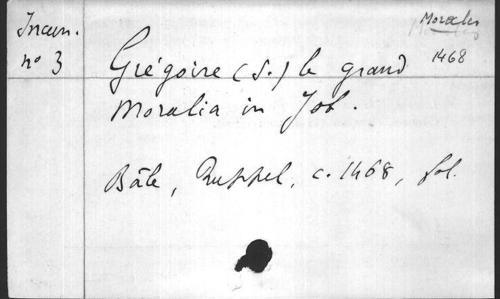 Incun.
nº 3
Morales
1468
Grégoire (S.) le grand
Moralia in Job.
Bâle, Ruppel, c. 1468, fol.